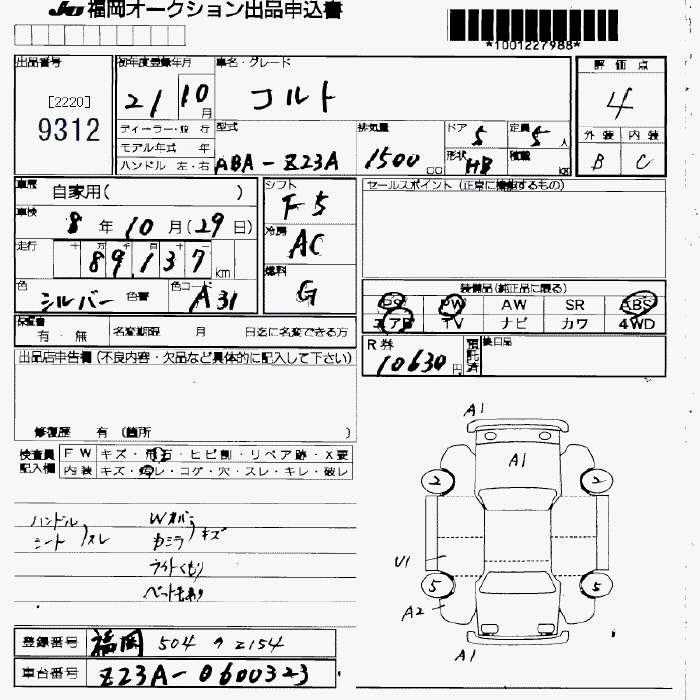 JU 福岡オークション出品申込書
*1001227988*
出品番号
[2220]
9312
初年度登録年月
21 10月
車名・グレード
コルト
評価点
4
外装 内装
B C
ディーラー・並行
モデル年式 年
ハンドル 左・右
型式
ABA-Z23A
排気量
1500 CC
ドア 5
形状 HB
定員 5 人
積載 KG
車歴
自家用( )
車検
8年10月(29日)
走行
十 万 千 百 十 一
89,137 km
色
シルバー
色替
色コード
A31
シフト
F5
冷房
AC
燃料
G
セールスポイント (正常に機能するもの)
装備品(純正品に限る)
PS PW AW SR ABS
エアB TV ナビ カワ 4WD
保証書
有・無
名変期限 月 日迄に名変できる方
R券
10630円
預託済
後日品
出品店申告欄 (不良内容・欠品など具体的に記入して下さい)
修復歴 有 (箇所 )
検査員記入欄
FW キズ・飛石・ヒビ割・リペア跡・X要
内装 キズ・汚レ・コゲ・穴・スレ・キレ・破レ
ハンドル
シート スレ
Wカバー
カミラ キズ
ライトくもり
ペット毛あり
A1
A1
2 2
U1
5 5
A2
A1
登録番号 福岡 504 ワ 2154
車台番号 Z23A-0600323